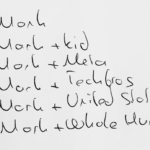 Mark
Mark + kid
Mark + Meta
Mark + Techbros
Mark + United Sta
Mark + Whole Hu